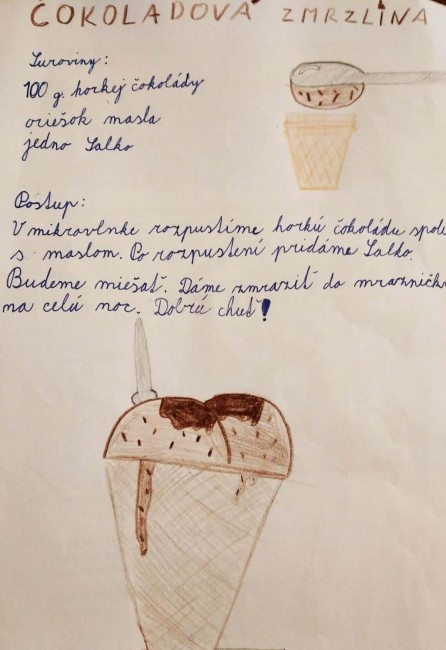 ČOKOLÁDOVÁ ZMRZLINA
Suroviny:
100 g. horkej čokolády
oriešok masla
jedno Salko
Postup:
V mikrovlnke rozpustíme horkú čokoládu spolu
s maslom. Po rozpustení pridáme Salko.
Budeme miešať. Dáme zmraziť do mrazničky
na celú noc. Dobrú chuť!